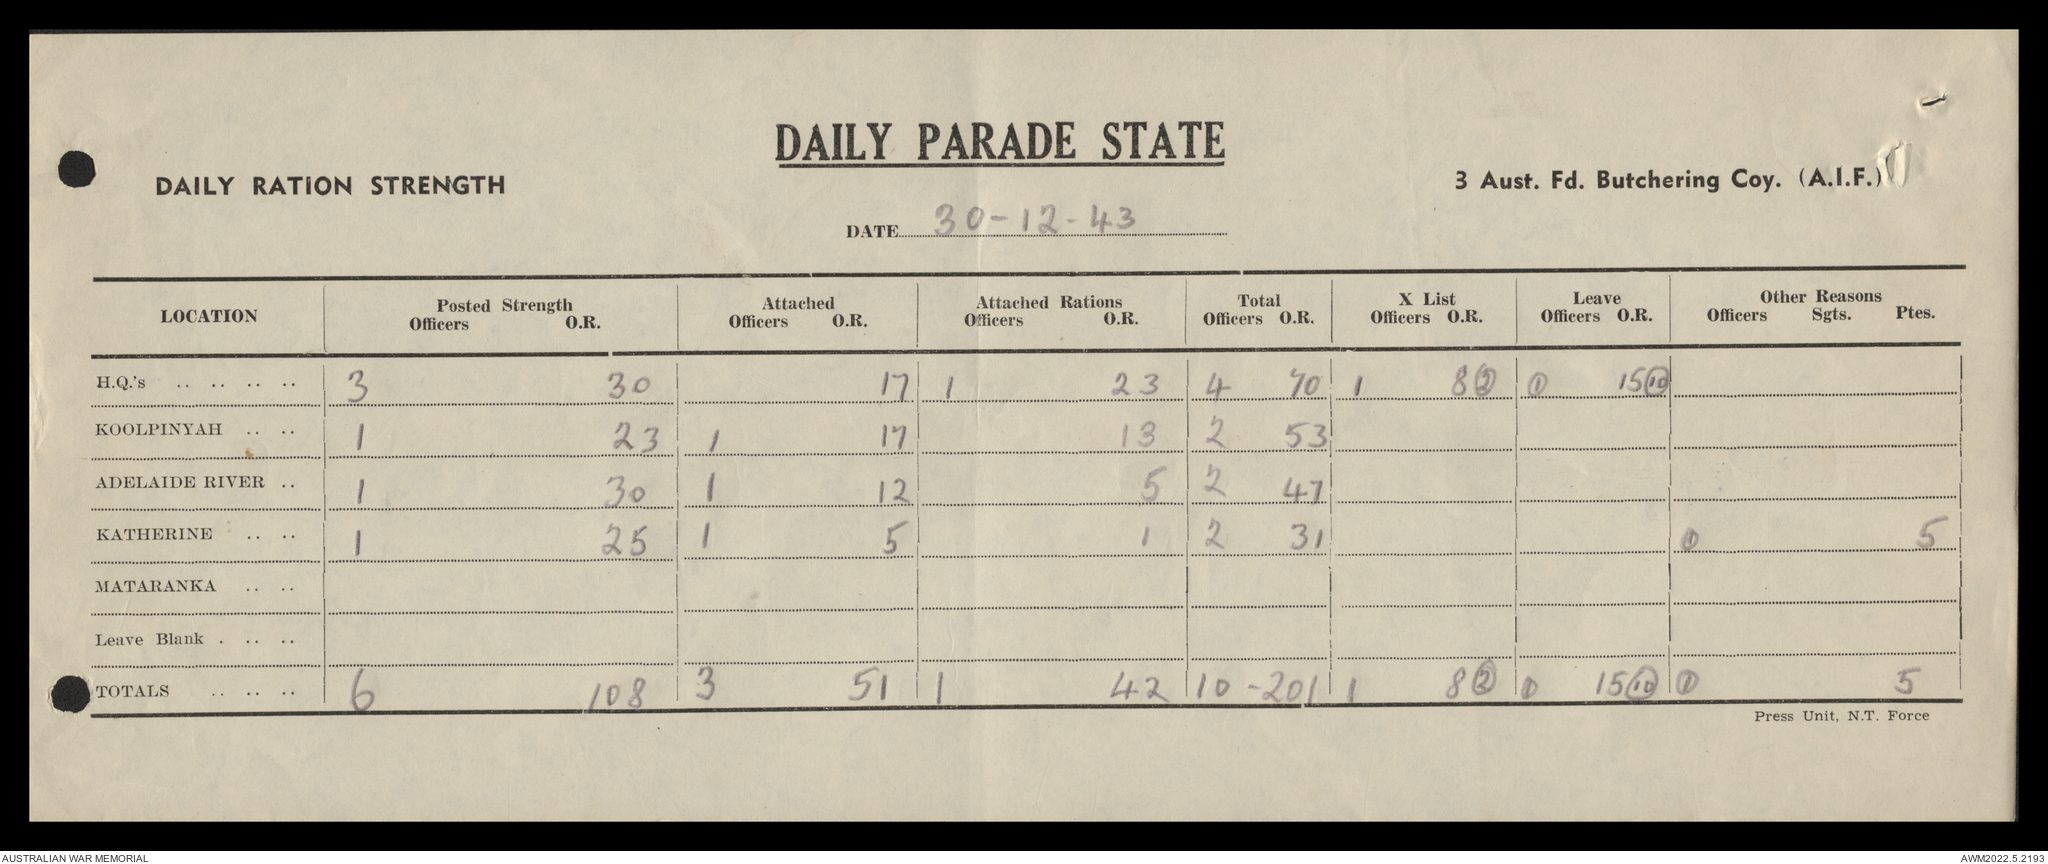 DAILY PARADE STATE
DAILY RATION STRENGTH
3 Aust. Fd. Butchering Coy. (A.I.F.)
DATE 30-12-43
LOCATION Posted Strength Officers O.R. Attached Officers O.R. Attached Rations Officers O.R. Total Officers O.R. X List Officers O.R. Leave Officers O.R. Other Reasons Officers Sgts. Ptes.
H.Q.'s .. .. .. .. 3 30 17 1 23 4 70 1 8 (2) (1) 15 (10)
KOOLPINYAH .. .. 1 23 1 17 13 2 53
ADELAIDE RIVER .. 1 30 1 12 5 2 47
KATHERINE .. .. 1 25 1 5 1 2 31 (1) 5
MATARANKA .. ..
Leave Blank . .. ..
TOTALS .. .. .. 6 108 3 51 1 42 10 - 201 1 8 (2) (1) 15 (10) (1) 5
Press Unit, N.T. Force
AUSTRALIAN WAR MEMORIAL
AWM2022.5.2193